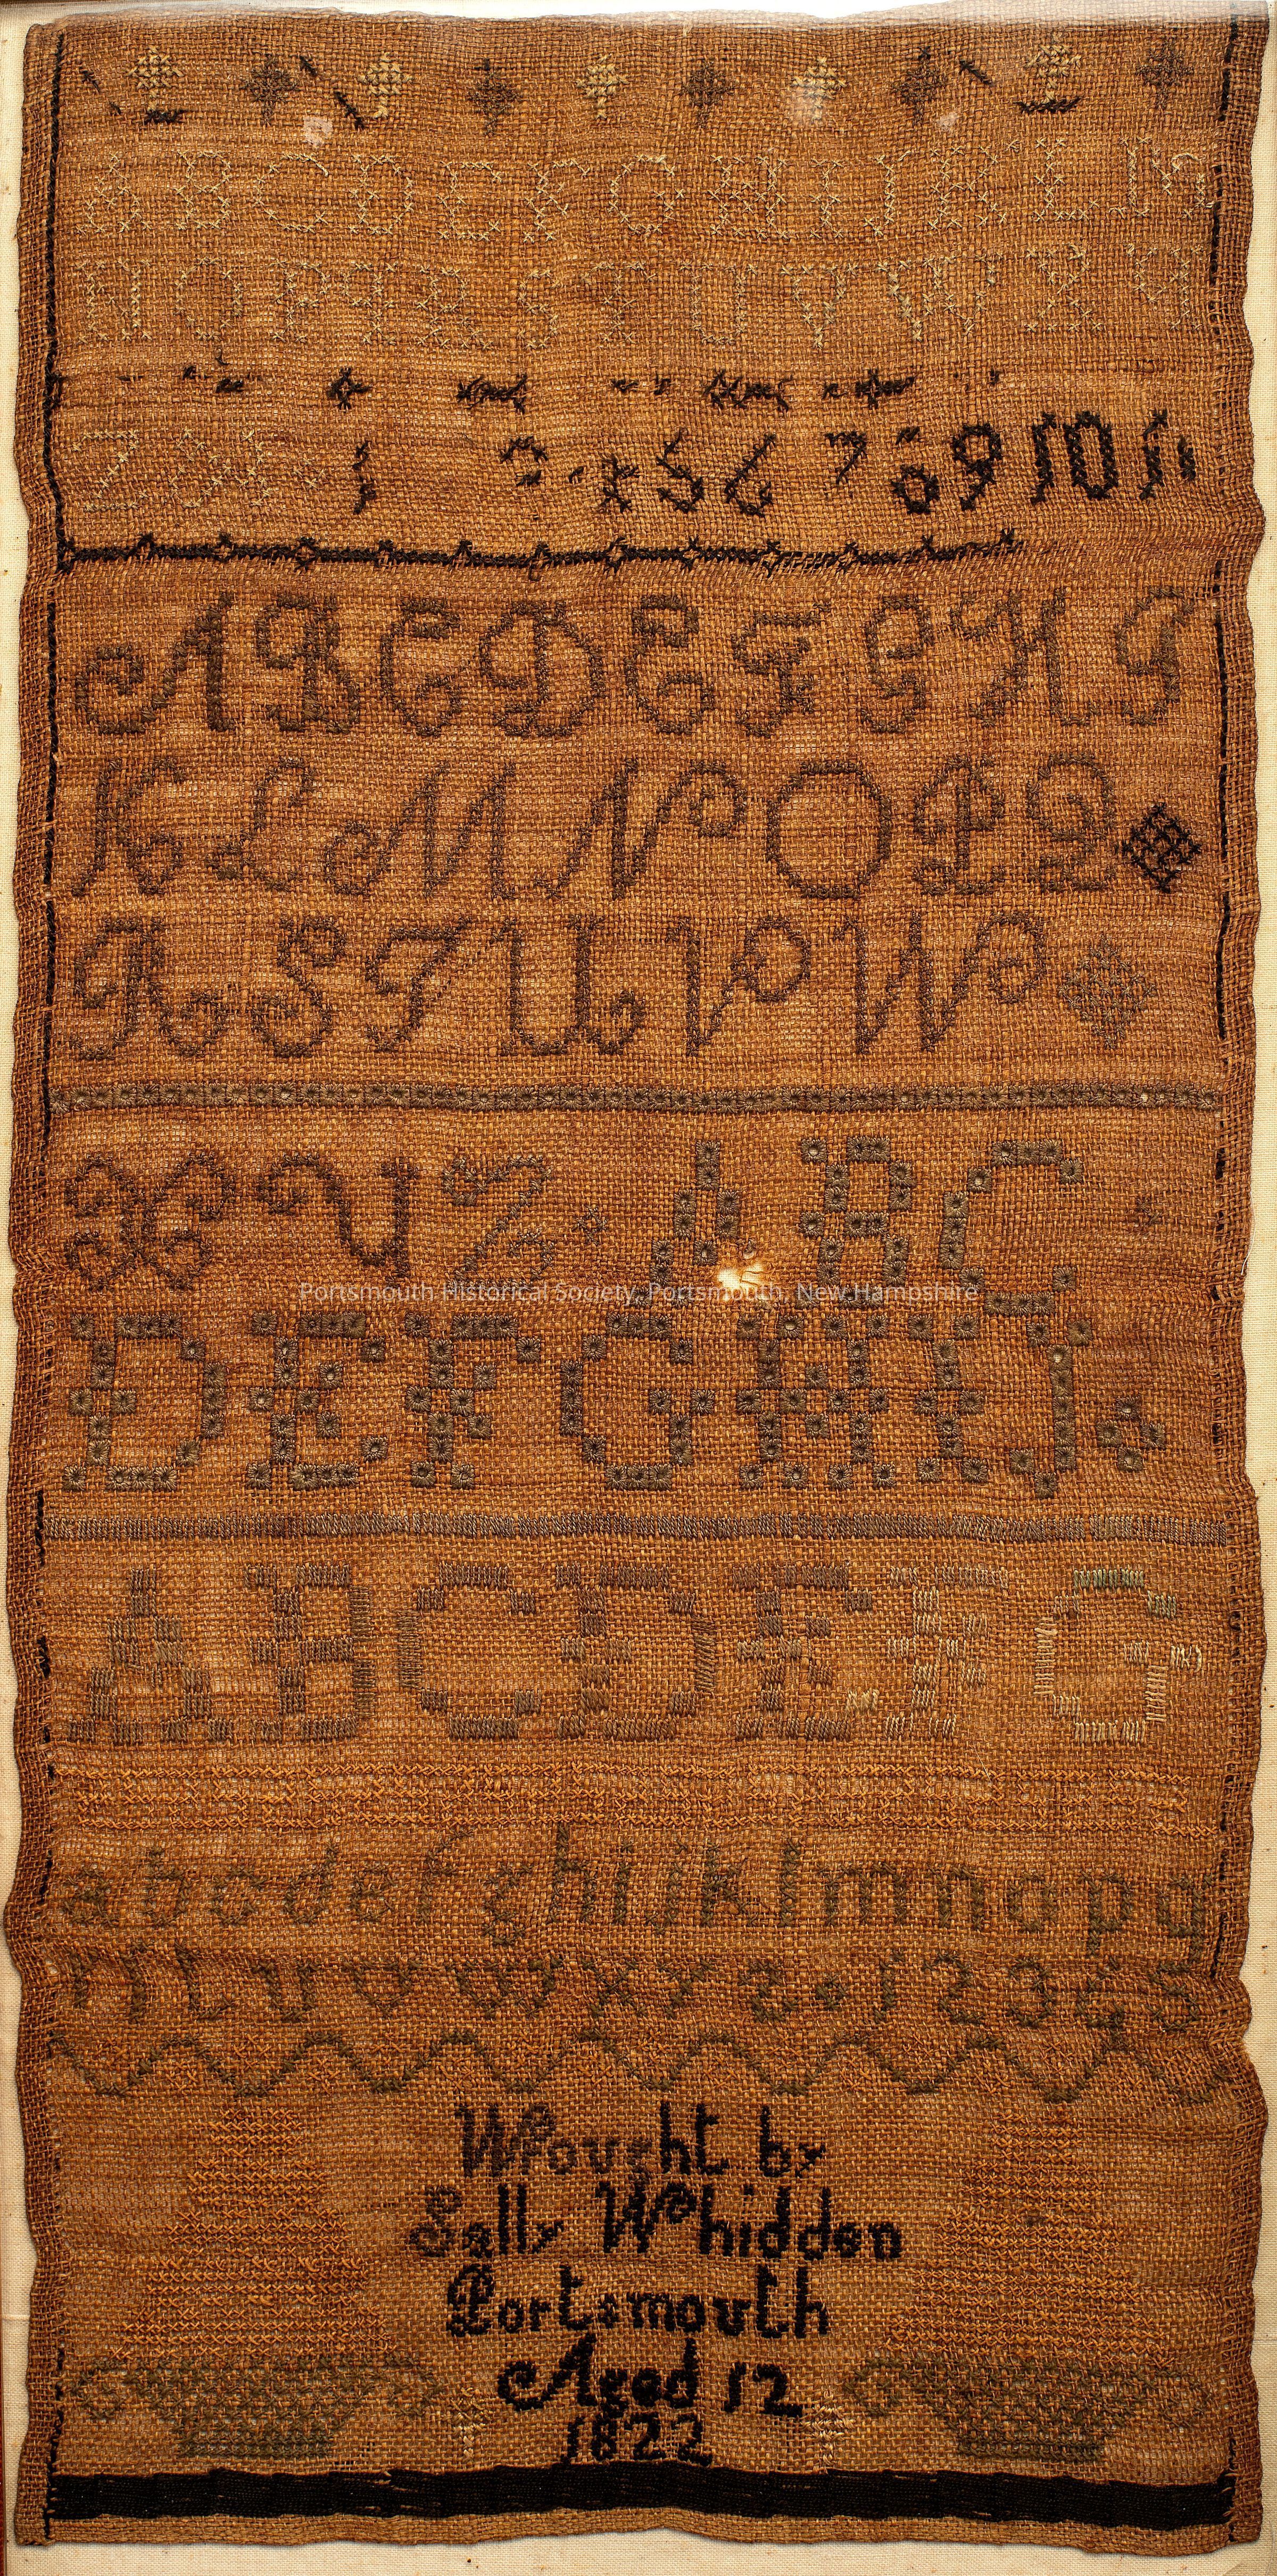 A B C D E F G H I J K L M
N O P Q R S T U V W X Y
Z & 1 5 6 7 8 9 10 11
A B C D E F G H I
K L M N O P Q
R S T U V W
X Y Z A B C
Portsmouth Historical Society, Portsmouth, New Hampshire
D E F G H I J
A B C D E F G
a b c d e f g h i j k l m n o p q
r t u v w x y z 1 2 3 4 5
Wrought by
Sally Whidden
Portsmouth
Aged 12
1822